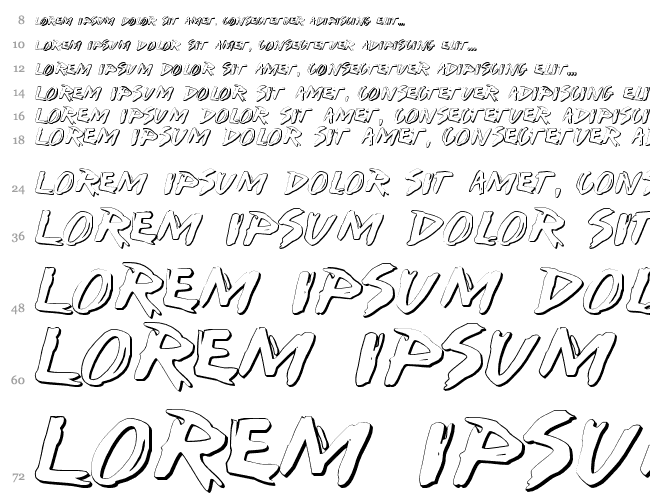 8 LOREM IPSUM DOLOR SIT AMET, CONSECTETUER ADIPISCING ELIT...
10 LOREM IPSUM DOLOR SIT AMET, CONSECTETUER ADIPISCING ELIT...
12 LOREM IPSUM DOLOR SIT AMET, CONSECTETUER ADIPISCING ELIT...
14 LOREM IPSUM DOLOR SIT AMET, CONSECTETUER ADIPISCING ELI
16 LOREM IPSUM DOLOR SIT AMET, CONSECTETUER ADIPISCI
18 LOREM IPSUM DOLOR SIT AMET, CONSECTETUER AD
24 LOREM IPSUM DOLOR SIT AMET, CONS
36 LOREM IPSUM DOLOR SIT
48 LOREM IPSUM DOL
60 LOREM IPSUM
72 LOREM IPSU